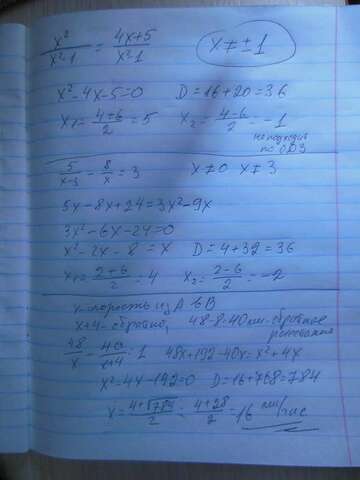 x²/(x²-1) = (4x+5)/(x²-1)    x ≠ ±1
x²-4x-5=0    D=16+20=36
x₁ = (4+6)/2 = 5    x₂ = (4-6)/2 = -1
не подходит
по ОДЗ
5/(x-3) - 8/x = 3    x≠0 x≠3
5x-8x+24=3x²-9x
3x²-6x-24=0
x²-2x-8=x    D=4+32=36
x₁ = (2+6)/2 = 4    x₂ = (2-6)/2 = -2
x-скорость из A в B
x+4- обратно, 48-8=40 км-обратное
расстояние
48/x - 40/(x+4) = 1    48x+192-40x=x²+4x
x²-4x-192=0    D=16+768=784
x = (4+√784)/2 = (4+28)/2 = 16 км/час